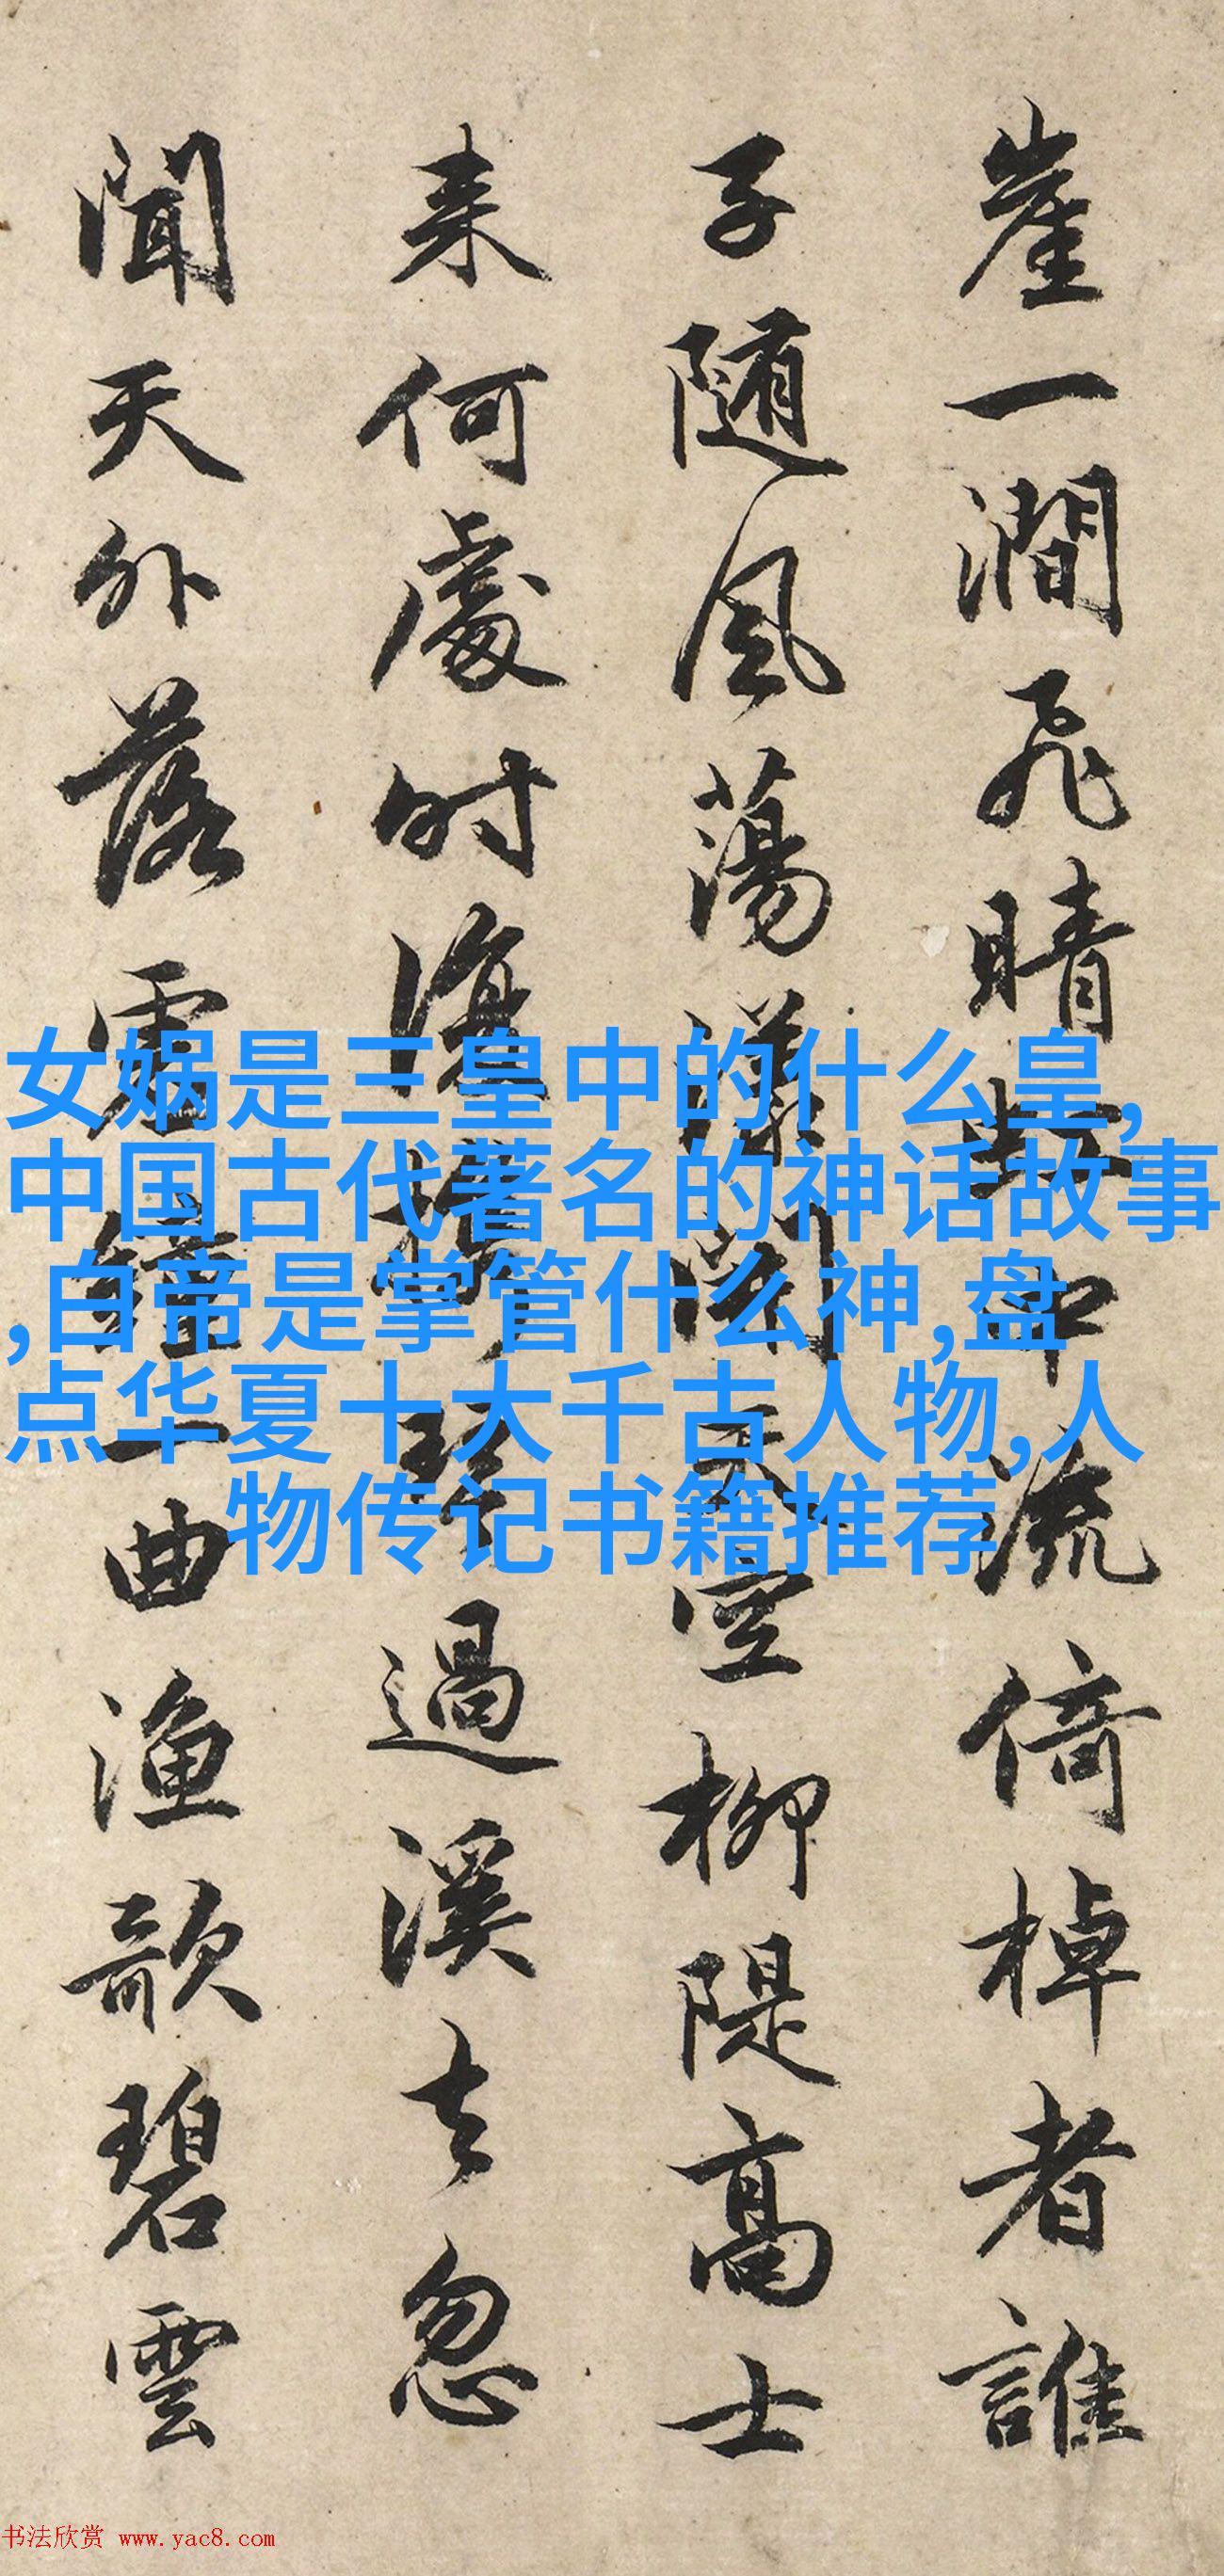 崖一澗飛晴虹中流倚棹者誰
子随風蕩漾閑天空柳隄高士
来何處時復携琴過溪去忽
聞天外落霜鐘一曲漁歌碧雲
女娲是三皇中的什么皇,
中国古代著名的神话故事
,白帝是掌管什么神,盘
点华夏十大千古人物,人
物传记书籍推荐
书法欣赏 www.yac8.com